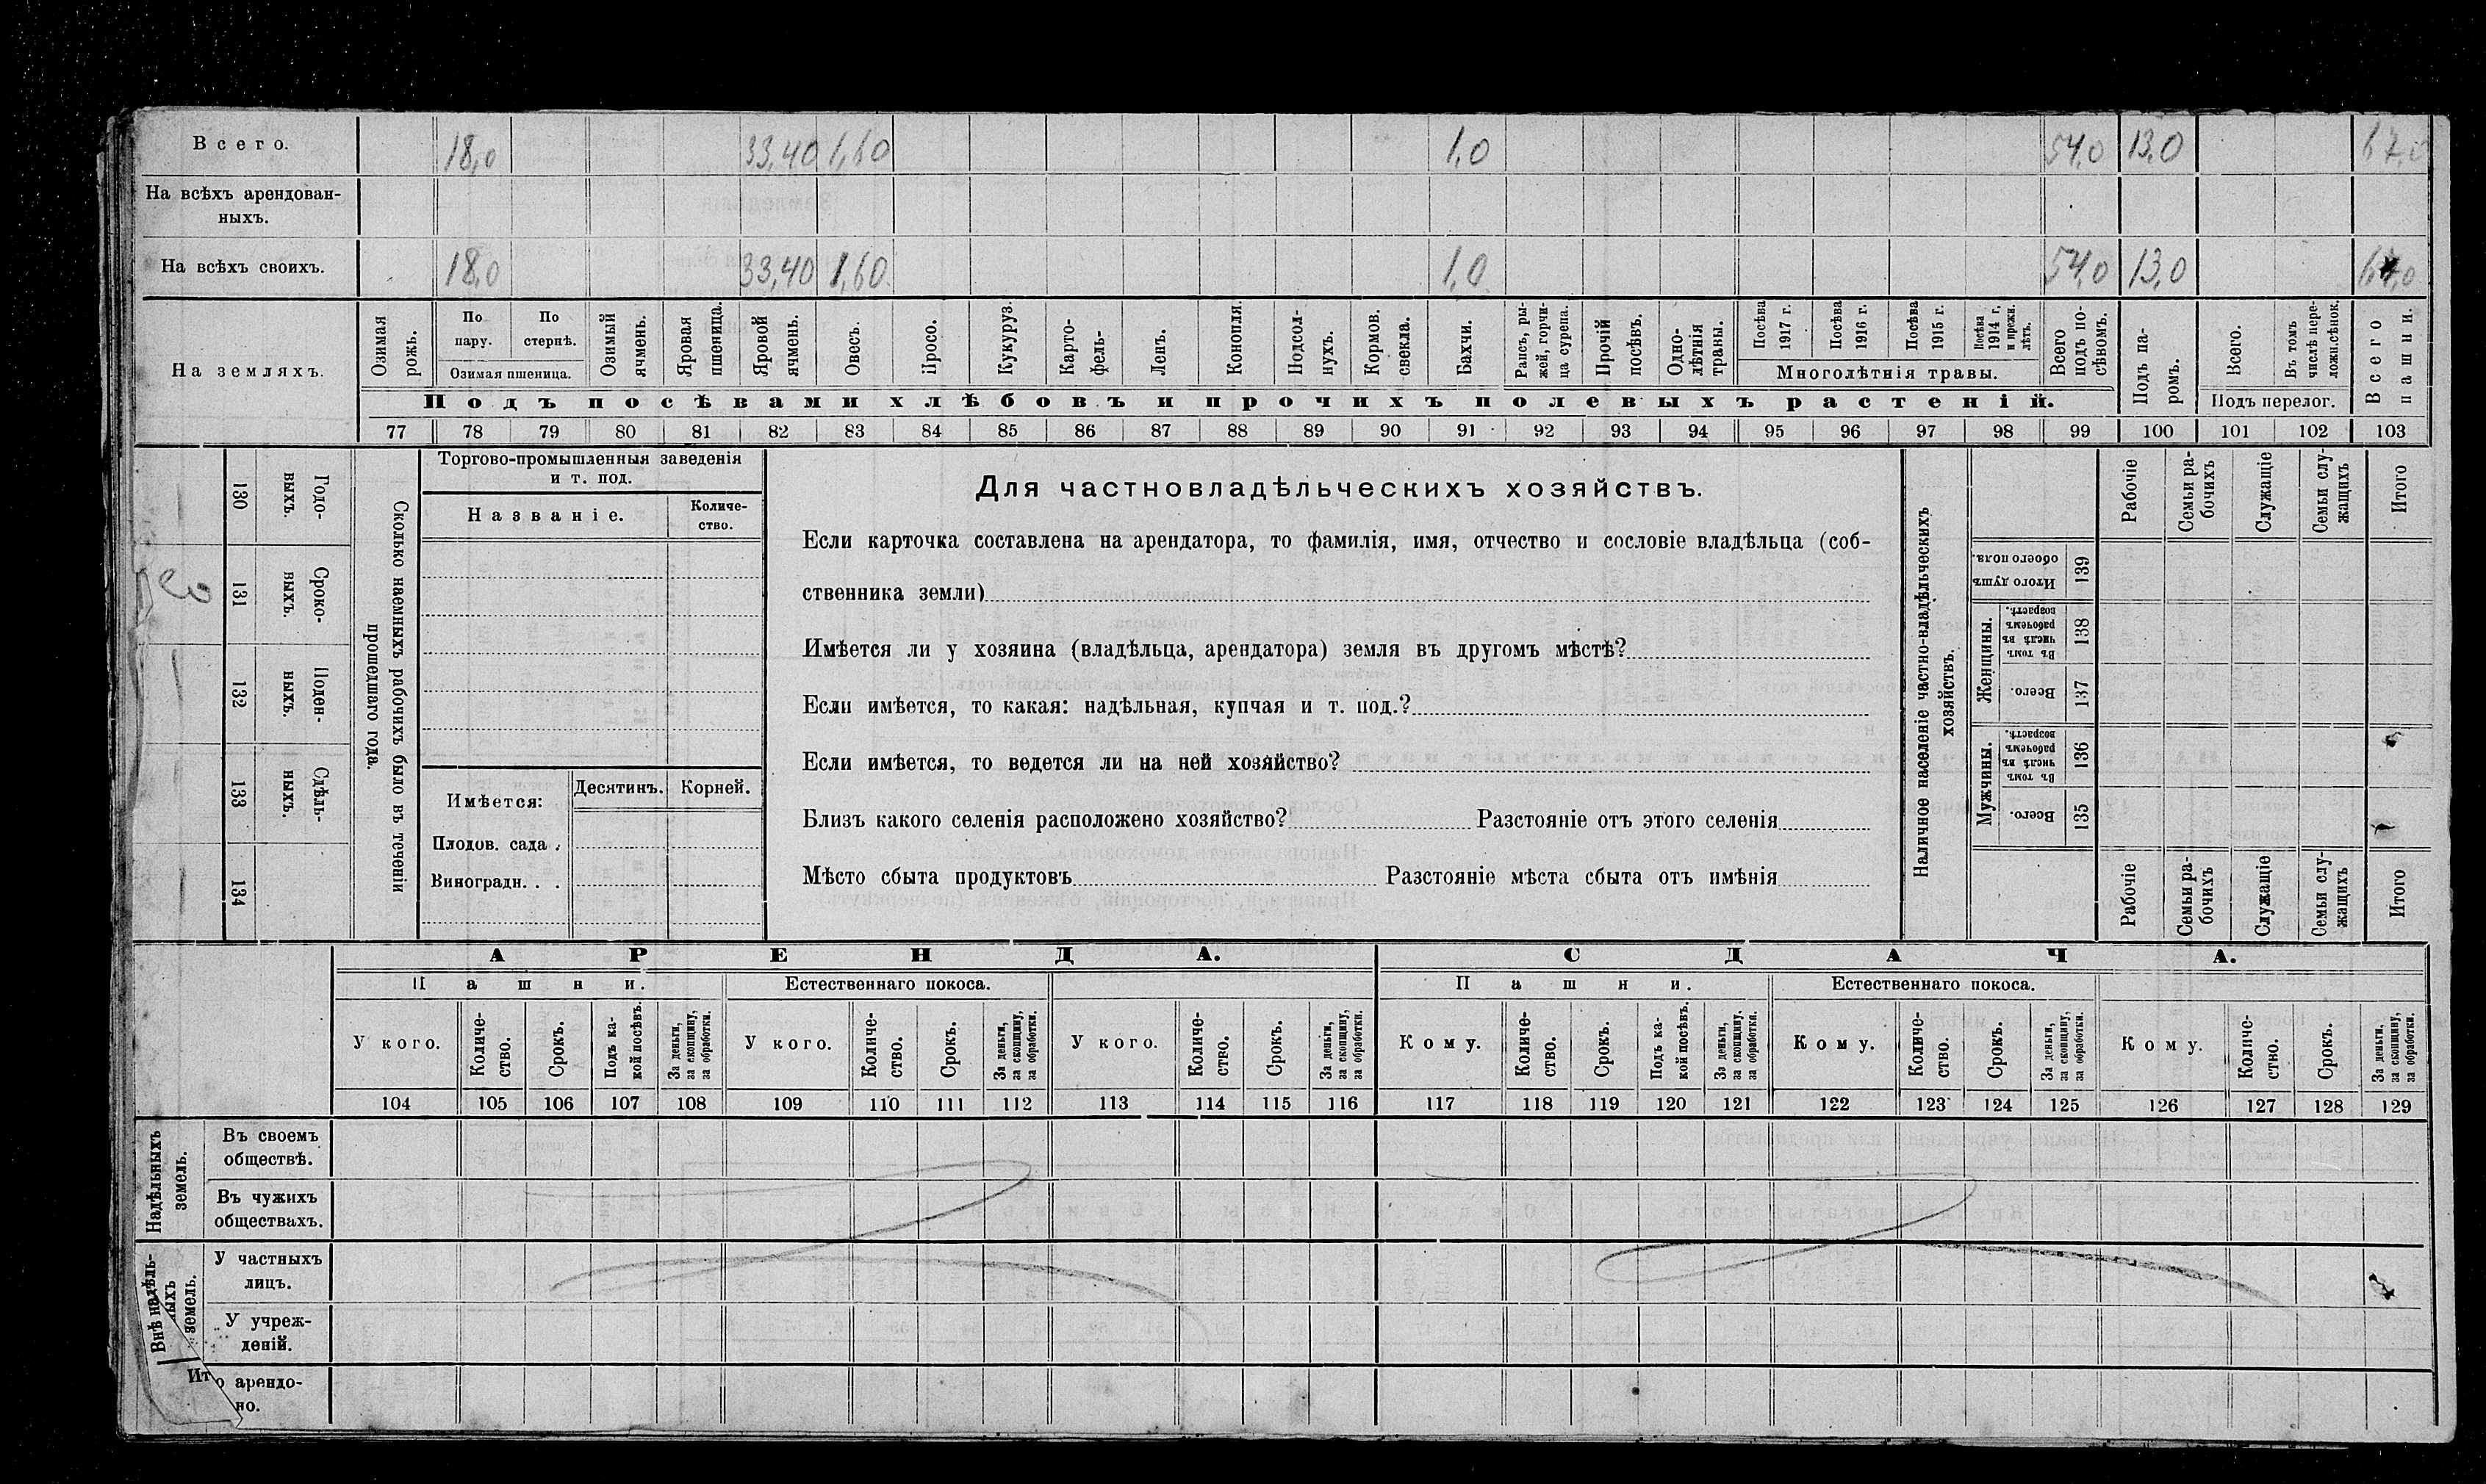 Всего. 18,0 33,40 1,60 1,0 54,0 13,0 67,0
На всѣхъ арендован-
ныхъ.
На всѣхъ своихъ. 18,0 33,40 1,60 1,0 54,0 13,0
На земляхъ.
Озимая рожь.
По пару.
По стернѣ.
Озимая пшеница.
Озимый ячмень.
Яровая пшеница.
Яровой ячмень.
Овесъ.
Просо.
Кукуруз.
Карто-
фель-
Ленъ.
Конопля.
Подсол-
нухъ.
Кормов. свекла.
Бахчи.
Рапсъ, ры-
жей, горчи-
ца сурепа.
Прочій посѣвъ.
Одно-
лѣтнія травы.
Посѣва 1917 г.
Посѣва 1916 г.
Посѣва 1915 г.
Посѣва 1914 г. и прежн. лѣтъ.
Многолѣтнія травы.
Всего подъ по-
сѣвомъ.
Подъ па-
ромъ.
Всего.
Въ томъ числѣ пере-
ложн.сѣнок.
Подъ перелог.
Всего пашни.
Подъ посѣвами хлѣбовъ и прочихъ полевыхъ растеній.
77 78 79 80 81 82 83 84 85 86 87 88 89 90 91 92 93 94 95 96 97 98 99 100 101 102 103
Сколько наемныхъ рабочихъ было въ теченіи
прошедшаго года.
Годо-
выхъ.
130
Сроко-
выхъ.
131
Поден-
ныхъ.
132
Сдѣль-
ныхъ.
133
134
Торгово-промышленныя заведенія
и т. под.
Названіе.
Количе-
ство.
Имѣется:
Десятинъ. Корней.
Плодов. сада .
Виноградн. . .
Для частновладѣльческихъ хозяйствъ.
Если карточка составлена на арендатора, то фамилія, имя, отчество и сословіе владѣльца (соб-
ственника земли)
Имѣется ли у хозяина (владѣльца, арендатора) земля въ другомъ мѣстѣ?
Если имѣется, то какая: надѣльная, купчая и т. под.?
Если имѣется, то ведется ли на ней хозяйство?
Близъ какого селенія расположено хозяйство? Разстояніе отъ этого селенія
Мѣсто сбыта продуктовъ Разстояніе мѣста сбыта отъ имѣнія
Наличное населеніе частно-владѣльческихъ
хозяйствъ.
Рабочіе
Семьи ра-
бочихъ
Служащіе
Семьи слу-
жащихъ
Итого
Итого душъ обоего пола.
139
Женщины.
Въ томъ числѣ въ рабочемъ возрастѣ.
138
Всего.
137
Мужчины.
Въ томъ числѣ въ рабочемъ возрастѣ.
136
Всего.
135
Рабочіе
Семьи ра-
бочихъ
Служащіе
Семьи слу-
жащихъ
Итого
АРЕНДА. СДАЧА.
Пашни. Естественнаго покоса. Пашни. Естественнаго покоса.
У кого.
Количе-
ство.
Срокъ.
Подъ ка-
кой посѣвъ.
За деньги,
за скопщину,
за обработки.
У кого.
Количе-
ство.
Срокъ.
За деньги,
за скопщину,
за обработки.
У кого.
Количе-
ство.
Срокъ.
За деньги,
за скопщину,
за обработки.
Кому.
Количе-
ство.
Срокъ.
Подъ ка-
кой посѣвъ.
За деньги,
за скопщину,
за обработка.
Кому.
Количе-
ство.
Срокъ.
За деньги,
за скопщину,
за обработки.
Кому.
Количе-
ство.
Срокъ.
За деньги,
за скопщину,
за обработки.
104 105 106 107 108 109 110 111 112 113 114 115 116 117 118 119 120 121 122 123 124 125 126 127 128 129
Надѣльныхъ
земель.
Въ своемъ
обществѣ.
Въ чужихъ
обществахъ.
Внѣ надѣль-
ныхъ
земель.
У частныхъ
лицъ.
У учреж-
деній.
Ит о арендо-
но.